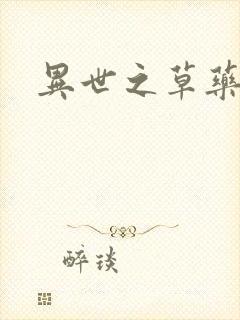 異世之草藥
醉琰